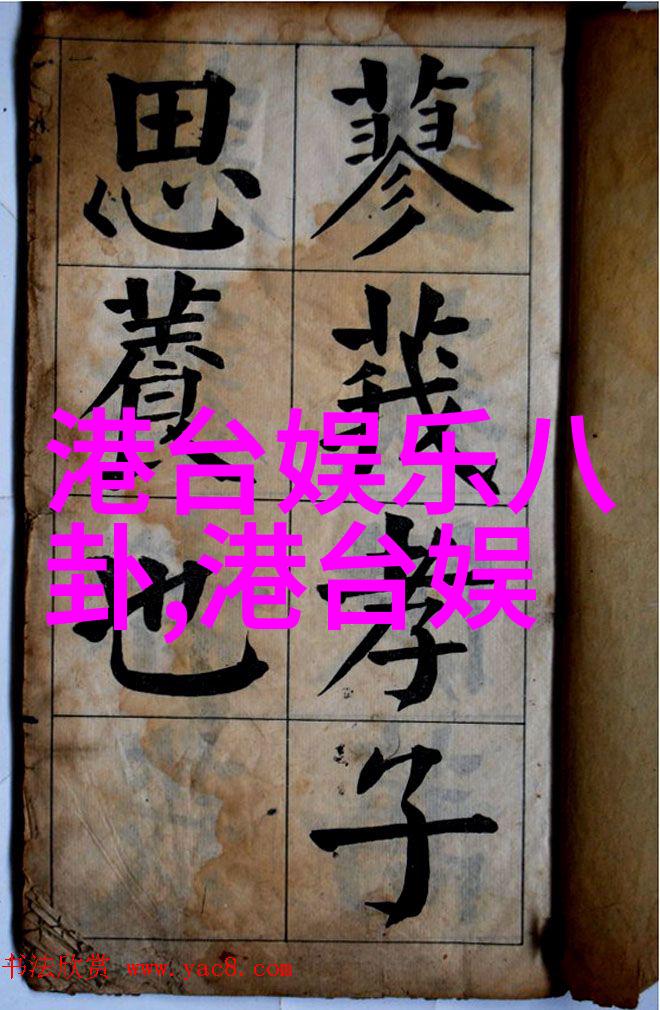 蓼莪孝子
思養也
港台娱乐八
卦,港台娱
书法欣赏 www.yac8.com